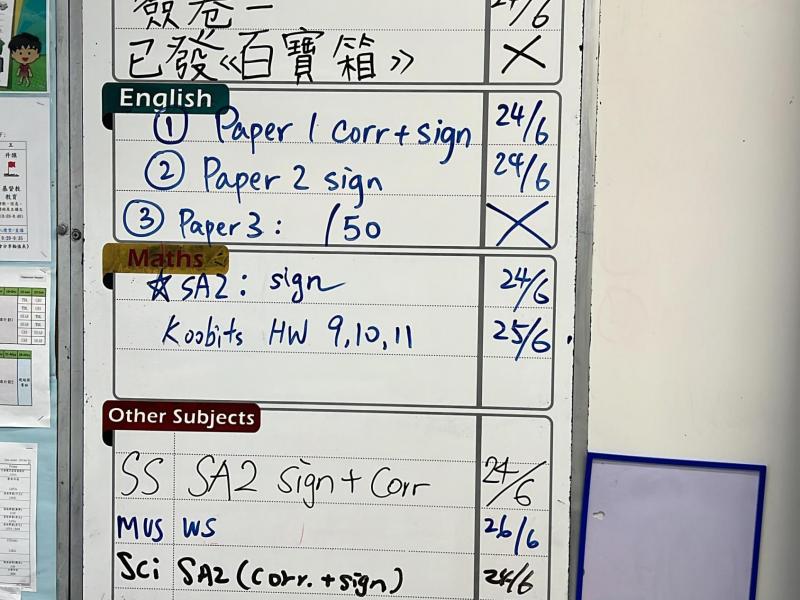 簽卷一 24/6
已發《百寶箱》 ×
English
① Paper 1 corr + sign 24/6
② Paper 2 sign 24/6
③ Paper 3 : /50 ×
Maths
☆ SA2 : sign 24/6
Koobits HW 9,10,11 25/6
Other Subjects
SS SA2 sign + Corr 24/6
MUS WS 26/6
Sci SA2 (Corr. + sign) 24/6